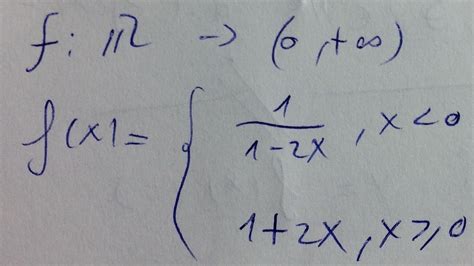 f: ℝ → (0, +∞)
f(x) = { 1/(1-2x) , x < 0
1+2x , x ≥ 0